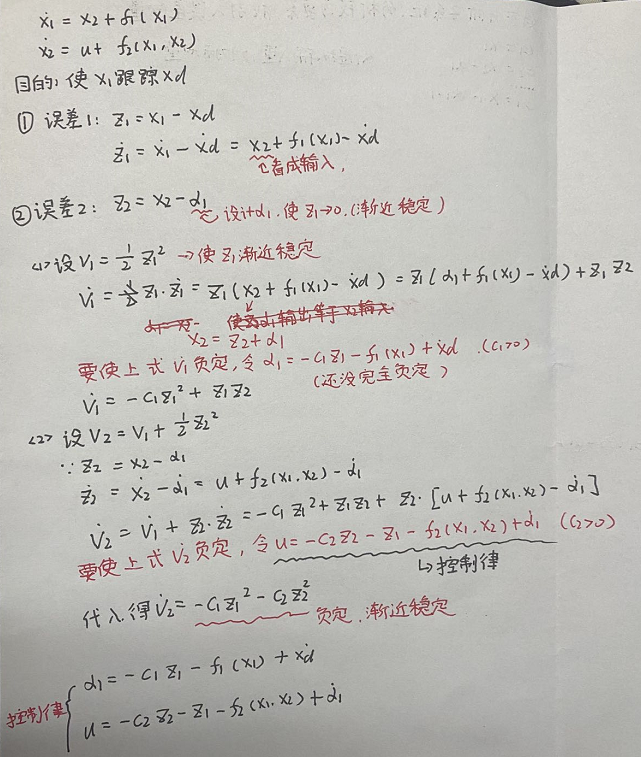 ẋ₁ = x₂ + f₁(x₁)
ẋ₂ = u + f₂(x₁, x₂)
目的: 使 x₁ 跟踪 xd
① 误差1: z₁ = x₁ − xd
ż₁ = ẋ₁ − ẋd = x₂ + f₁(x₁) − ẋd
↑看成输入,
② 误差2: z₂ = x₂ − α₁
设计α₁. 使 z₁→0. (渐近稳定)
<1> 设 V₁ = 1/2 z₁² → 使 z₁ 渐近稳定
V̇₁ = z₁·ż₁ = z₁(x₂ + f₁(x₁) − ẋd) = z₁(α₁ + f₁(x₁) − ẋd) + z₁z₂
x₂ = z₂ + α₁
要使上式 V̇₁ 负定, 令 α₁ = −c₁z₁ − f₁(x₁) + ẋd. (c₁>0)
V̇₁ = −c₁z₁² + z₁z₂ (还没完全负定)
<2> 设 V₂ = V₁ + 1/2 z₂²
∵ z₂ = x₂ − α₁
ż₂ = ẋ₂ − α̇₁ = u + f₂(x₁, x₂) − α̇₁
V̇₂ = V̇₁ + z₂·ż₂ = −c₁z₁² + z₁z₂ + z₂·[u + f₂(x₁, x₂) − α̇₁]
要使上式 V̇₂ 负定, 令 u = −c₂z₂ − z₁ − f₂(x₁, x₂) + α̇₁ (c₂>0)
↳控制律
代入得 V̇₂ = −c₁z₁² − c₂z₂² 负定. 渐近稳定
控制律 { α₁ = −c₁z₁ − f₁(x₁) + ẋd
u = −c₂z₂ − z₁ − f₂(x₁, x₂) + α̇₁